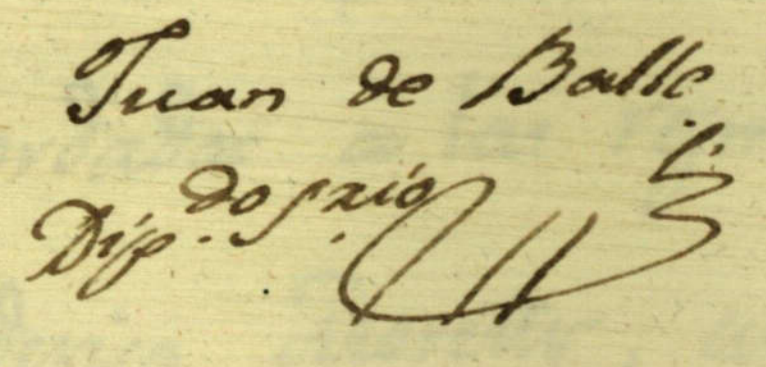 Juan de Balle
Dip.do s.rio